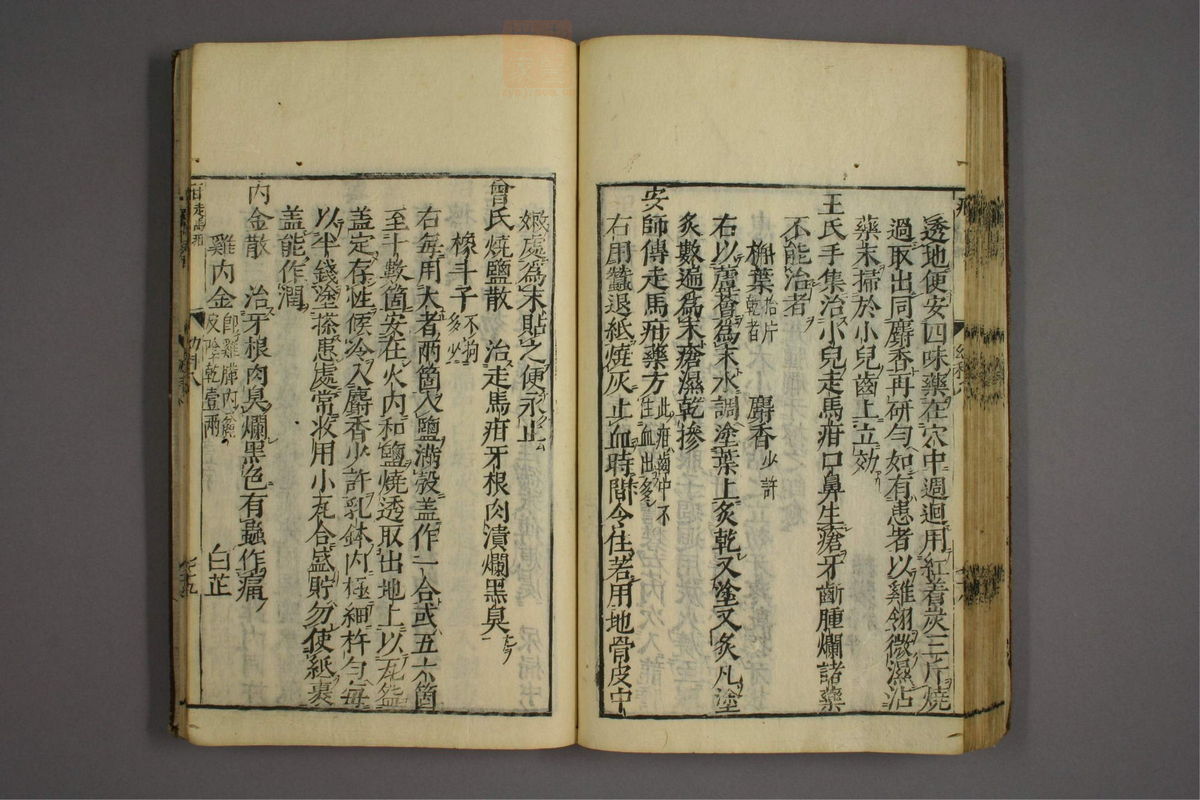 透地便安四味藥在穴中週迴用紅着炭三斤燒
過取出同麝香再研勻如有患者以雞翎微濕沾
藥末掃於小兒齒上立効
王氏手集治小兒走馬疳口鼻生瘡牙齗腫爛諸藥
不能治者
槲葉拾片乾者 麝香少許
右以蘆薈爲末水調塗葉上炙乾又塗又炙凡塗
炙數遍爲末瘡濕乾摻
安師傳走馬疳藥方此疳齒中不生血出多
右用蠶退紙燒灰止血時間令住若用地骨皮中
嫩處爲末貼之便永止
曾氏燒鹽散 治走馬疳牙根肉潰爛黑臭
橡斗子不拘多少
右每用大者兩箇入鹽滿殼盖作一合或五六箇
至十數箇安在火內和鹽燒透取出地上以瓦
盖定存性候冷入麝香少許乳鉢內極細杵勻每
以半錢塗搽患處常收用小瓦合盛貯勿使紙裹
盖能作潤
內金散 治牙根肉臭爛黑色有蟲作痛
雞內金即雞肫內皮陰乾壹兩 白芷
走馬疳
幼科八
七十九